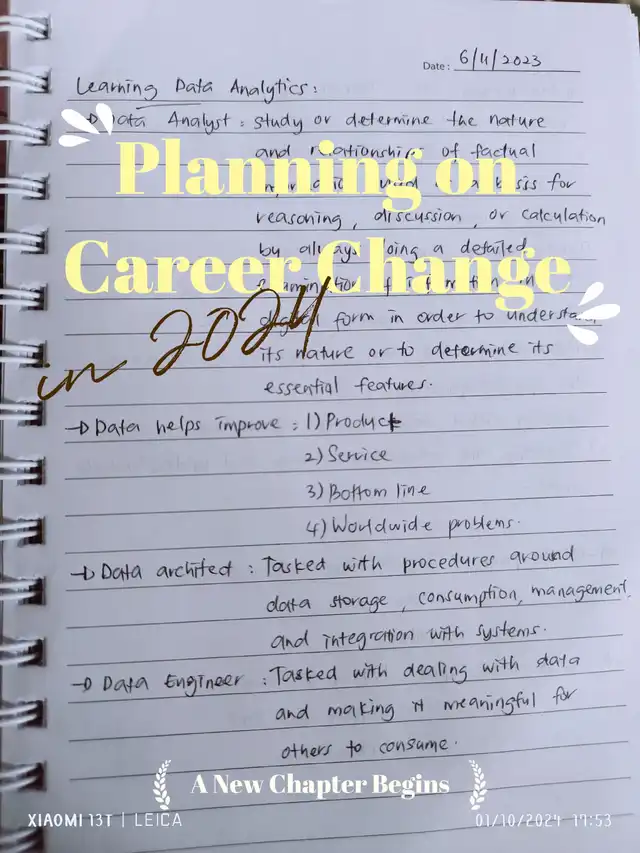 Date: 6/11/2023
Learning Data Analytics:
→ Data Analyst: study or determine the nature
and relationships of factual
used basis for
reasoning, discussion, or calculation
by always doing a detailed
examination of information in
digital form in order to understand
its nature or to determine its
essential features.
→ Data helps improve: 1) Product
2) Service
3) Bottom line
4) Worldwide problems.
→ Data architect: Tasked with procedures around
data storage, consumption, management
and integration with systems.
→ Data Engineer: Tasked with dealing with data
and making it meaningful for
others to consume.
Planning on
Career Change
in 2024
A New Chapter Begins
XIAOMI 13T | LEICA
01/10/2024 17:53